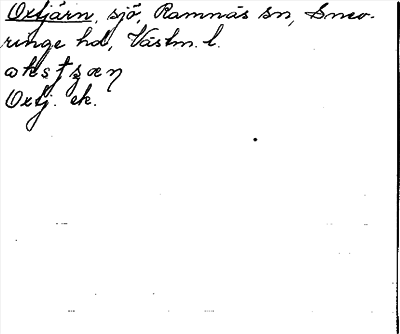 Oxtjärn, sjö, Ramnäs sn, Snev-
ringe hd, Västm. l.
Oxtj. ek.